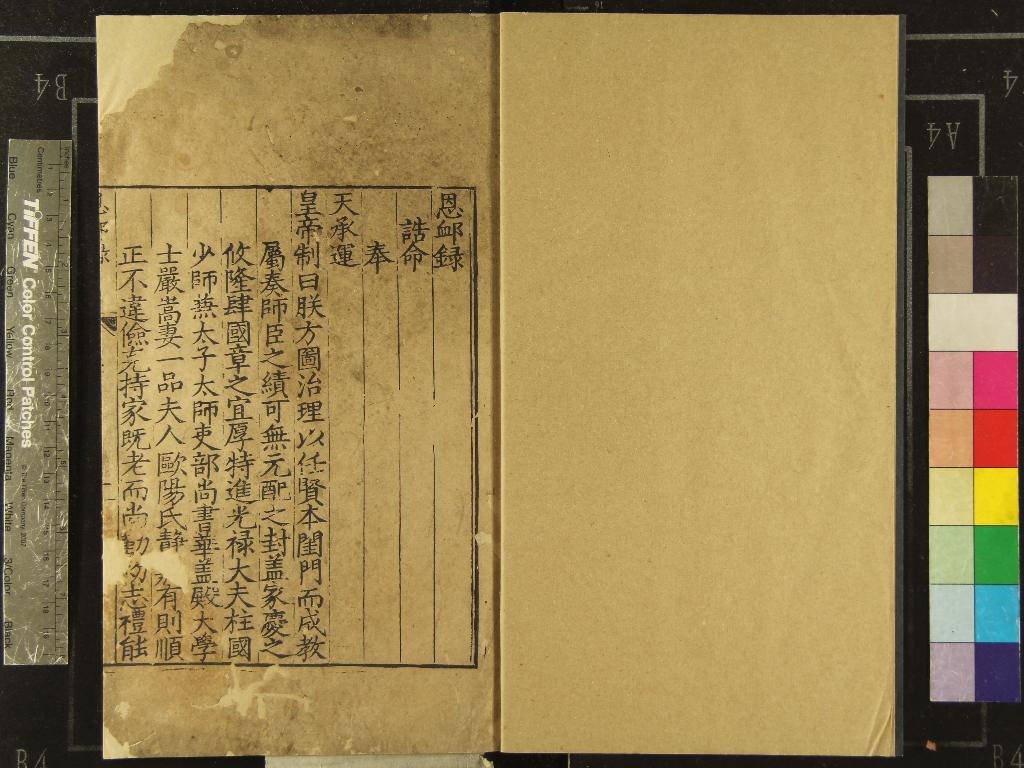 恩䘏録
誥命
奉
天承運
皇帝制曰朕方圖治理以任賢本閨門而成教
屬奏師臣之績可無元配之封盖家慶之
攸隆肆國章之宜厚特進光禄大夫柱國
少師兼太子太師吏部尚書華盖殿大學
士嚴嵩妻一品夫人歐陽氏静 有則順
正不違儉克持家既老而尚 幼 志禮能
B4
A4
TIFFEN Color Control Patches
© The Tiffen Company, 2007
Centimetres
Inches
Blue
Cyan
Green
Yellow
Red
Magenta
White
3/Color
Black
B4
B4